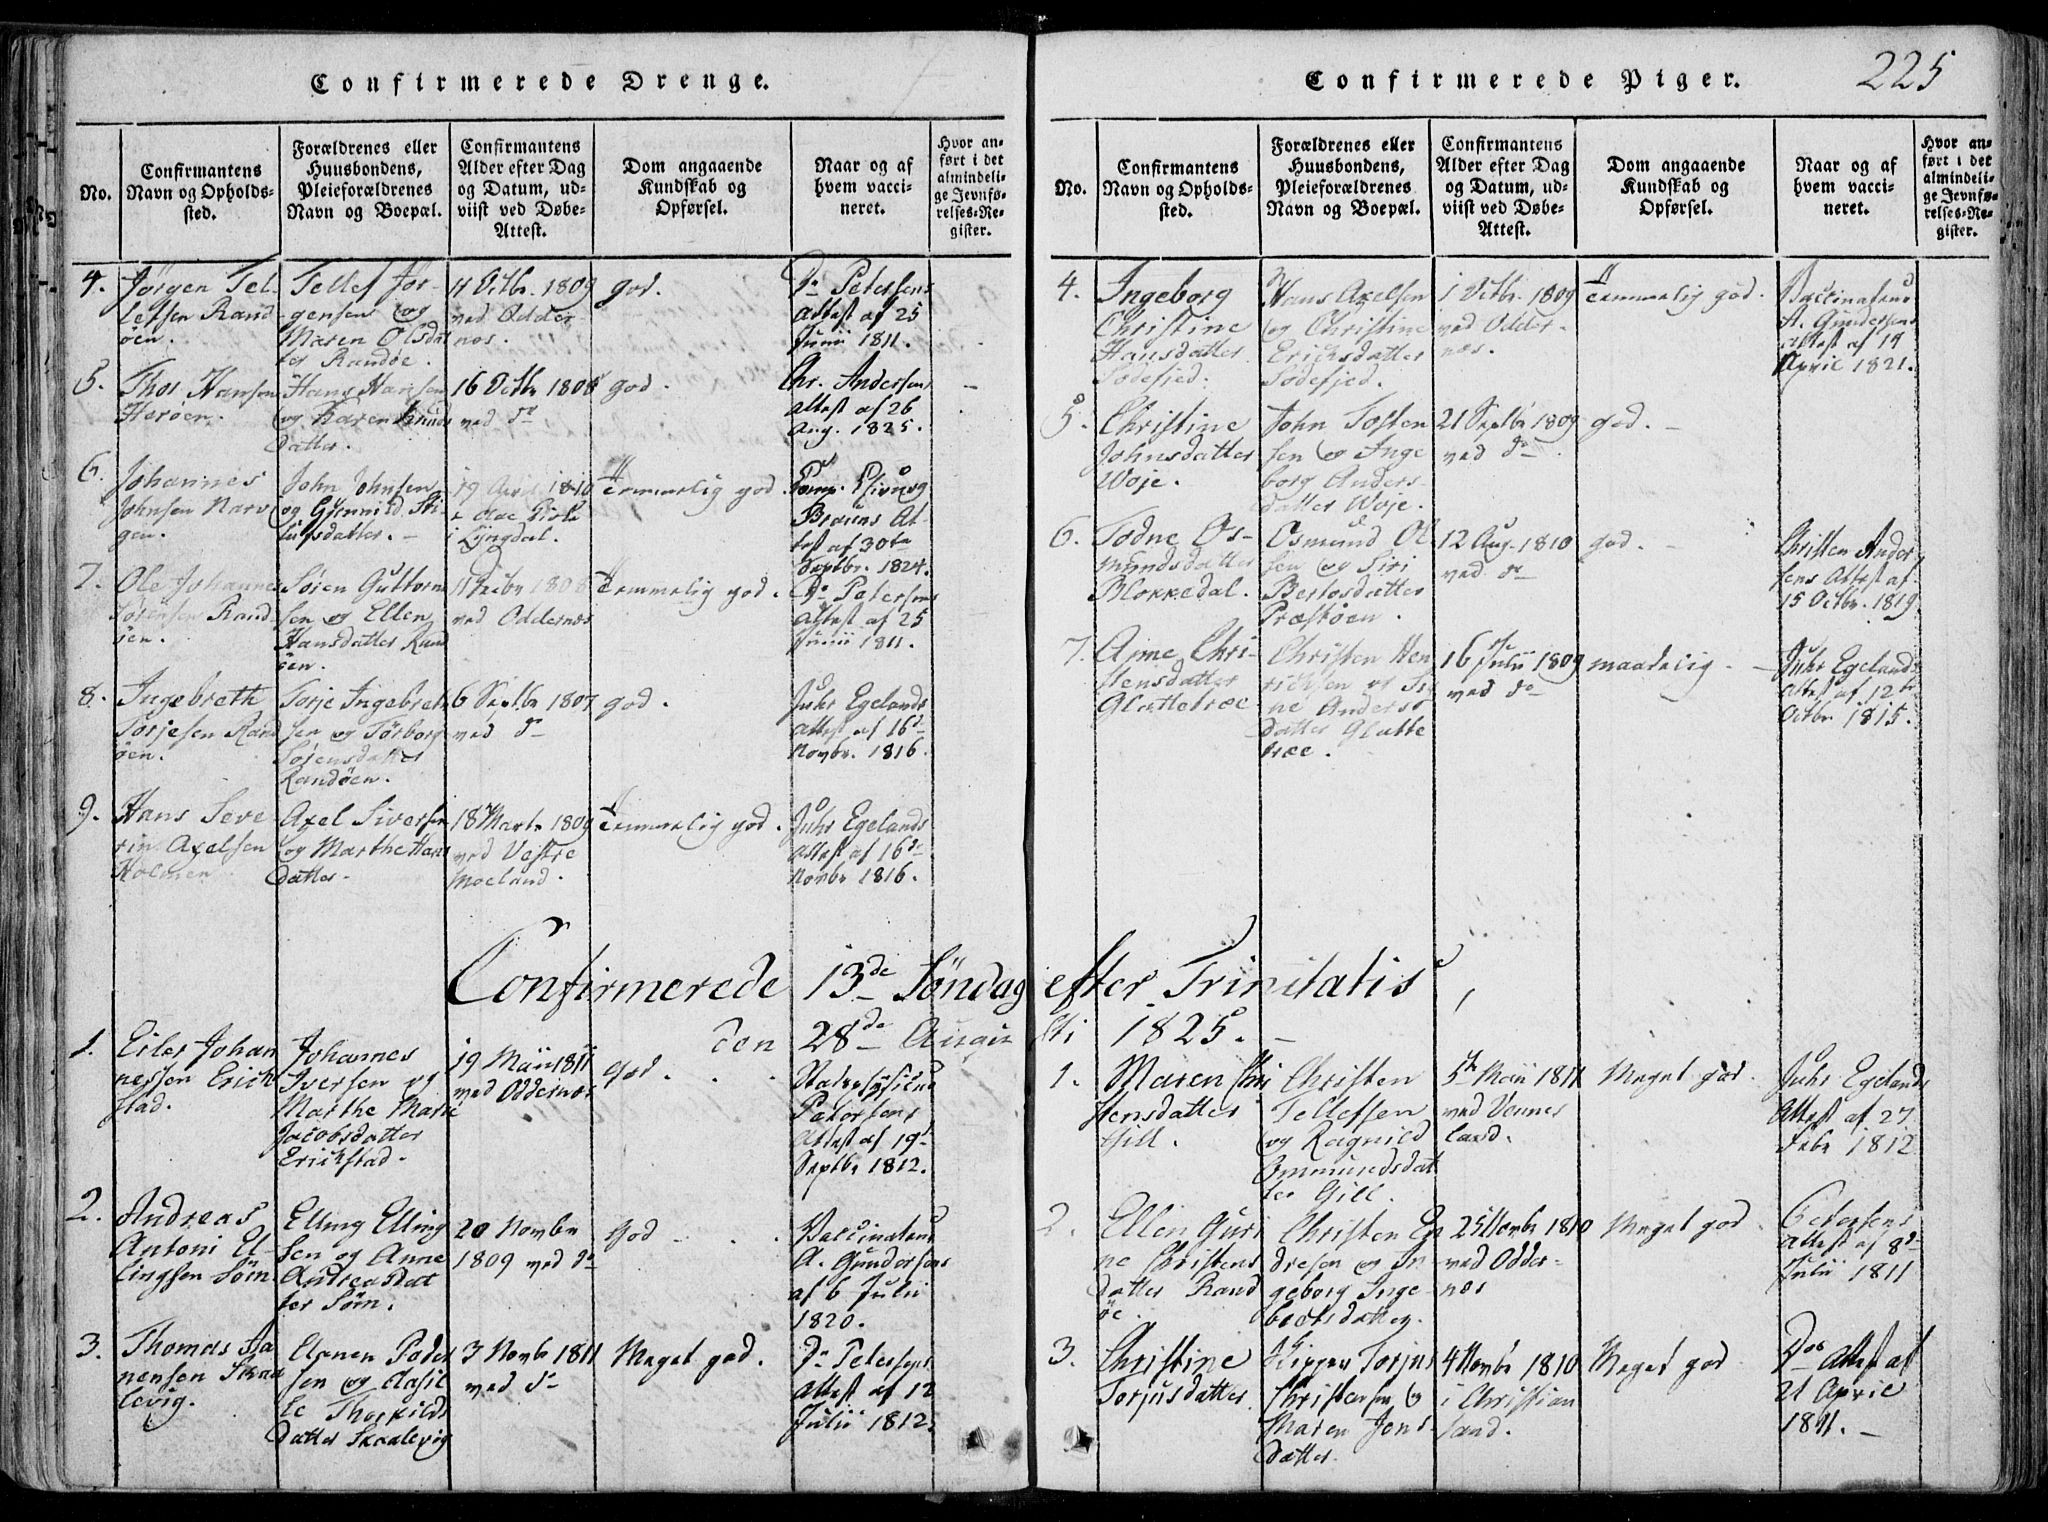 Confirmerede Drenge.
No.
Confirmantens
Navn og Opholds-
sted.
Forældrenes eller
Huusbondens,
Pleieforældrenes
Navn og Boepæl.
Confirmantens
Alder efter Dag
og Datum, ud-
viist ved Døbe-
Attest.
Dom angaaende
Kundskab og
Opførsel.
Naar og af
hvem vacci-
neret.
Hvor an-
ført i det
almindeli-
ge Jevnfø-
relses-Re-
gister.
4.
Jørgen Tel-
lefsen Rand
öen.
Tellef Jör-
gensen og
Maren Olsdat
ter Randöe.
11 Octbr. 1809
ved Odder-
nes.
god.
Do Petersens
Attest af 25
Junii 1811.
5.
Thos Hansen
Heroen.
Hans Hansen
og Karen Knuds
datter.
16 Octbr 1808
ved do
god.
Chr. Andersens
Attest af 26
Aug. 1825.
6.
Johannes
Johnsen Narv
gen.
John Johnsen
og
datter.
19 1810
i Lyngdal.
Temmelig god.
Attest af 30te
Septbr. 1824.
7.
Ole Johannes
Sörensen Rand
öen.
Sören Guttorm
sen og Ellen
Hansdatter Rand
öen.
1808
ved Oddernes
Temmelig god.
Do Petersens
Attest af 25
Junii 1811.
8.
Ingebreth
Torjesen Rand
öen.
Torje Ingebret
sen og Törborg
Sörensdatter
Randöen.
6 Septbr 1807
ved do
god.
Juhr Egelands
Attest af 16de
Novbr. 1816.
9.
Hans Seve
rin Axelsen
Holmen
Axel Siversen
og Marthe Hans
datter.
18 Marts 1809
ved Vestre
Moeland.
Temmelig god.
Juhr Egelands
Attest af 16de
Novbr 1816.
Confirmerede 13de Söndag efter Trinitatis,
den 28de Augusti 1825.
1.
Eiler Johan
nessen Erick
stad.
Johannes
Iversen og
Marthe Marie
Jacobsdatter
Erickstad.
19 Maii 1811
ved Oddernes
god.
Petersens
Attest af 19de
Septbr 1812.
2.
Andreas
Antoni El-
lingsen Söm
Elling Elling
sen og Anne
Andreasdat
ter Söm.
20 Novbr
1809 ved do
God
Vaccinateur
A. Gundersens
af 6 Julii
1820.
3.
Thomas Aa
nensen Skaa
levig.
Aanen Peder
sen og Aasil
le Thorkilds
datter Skaalevig
3 Novbr 1811
ved do
Meget god.
Do Petersens
Attest af 12
Julii 1812.
Confirmerede Piger.
225
No.
Confirmantens
Navn og Opholds-
sted.
Forældrenes eller
Huusbondens,
Pleieforældrenes
Navn og Boepæl.
Confirmantens
Alder efter Dag
og Datum, ud-
viist ved Døbe-
Attest.
Dom angaaende
Kundskab og
Opførsel.
Naar og af
hvem vacci-
neret.
Hvor an-
ført i det
almindeli-
ge Jevnfø-
relses-Re-
gister.
4.
Ingeborg
Christine
Hansdatter
Södefjed.
Hans Axelsen
og Christine
Ericksdatter
Södefjed.
1 Octbr. 1809
ved Odder-
nes.
Temmelig god.
Vaccinateur
A. Gundersens
Attest af 14
April 1821.
5.
Christine
Johnsdatter
Woje.
John Tosten
sen og Inge
borg Anders
datter Woje.
21 Septbr 1809
ved do
god.
6.
Todne Os-
mundsdatter
Blokkedal.
Osmund Ol
sen og Siri
Bertosdatter
Præstöen.
12 Aug. 1810
ved do
god.
Christen Ander
sens Attest af
15 Octbr. 1819.
7.
Anne Chri-
stensdatter
Glattetræe
Christen Hen
ricksen og Si-
ne Anders
datter Glatte
træe.
16 Julii 1809
ved do
maadelig.
Juhr Egelands
Attest af 12te
Octbr 1815.
1.
Maren Chri
stensdatter
Gill.
Christen
Tellefsen
og Ragnild
Ommundsdat
ter Gill.
5te Maii 1811
ved Vennes
land.
Meget god.
Juhr Egelands
Attest af 27
Febr 1812
2.
Ellen Guri
ne Christens
datter Rand
öe.
Christen En
dresen og In-
geborg Inge-
bretsdatter.
25 Novbr 1810
ved Odder-
nes
Meget god.
Petersens
Attest af 8de
Julii 1811
3.
Christine
Torjusdatter
Torjus
Christensen og
Maren Jens
datter.
4 Novbr 1810
i Christian
sand.
Meget god
Dos Attest af
21 April
1811.